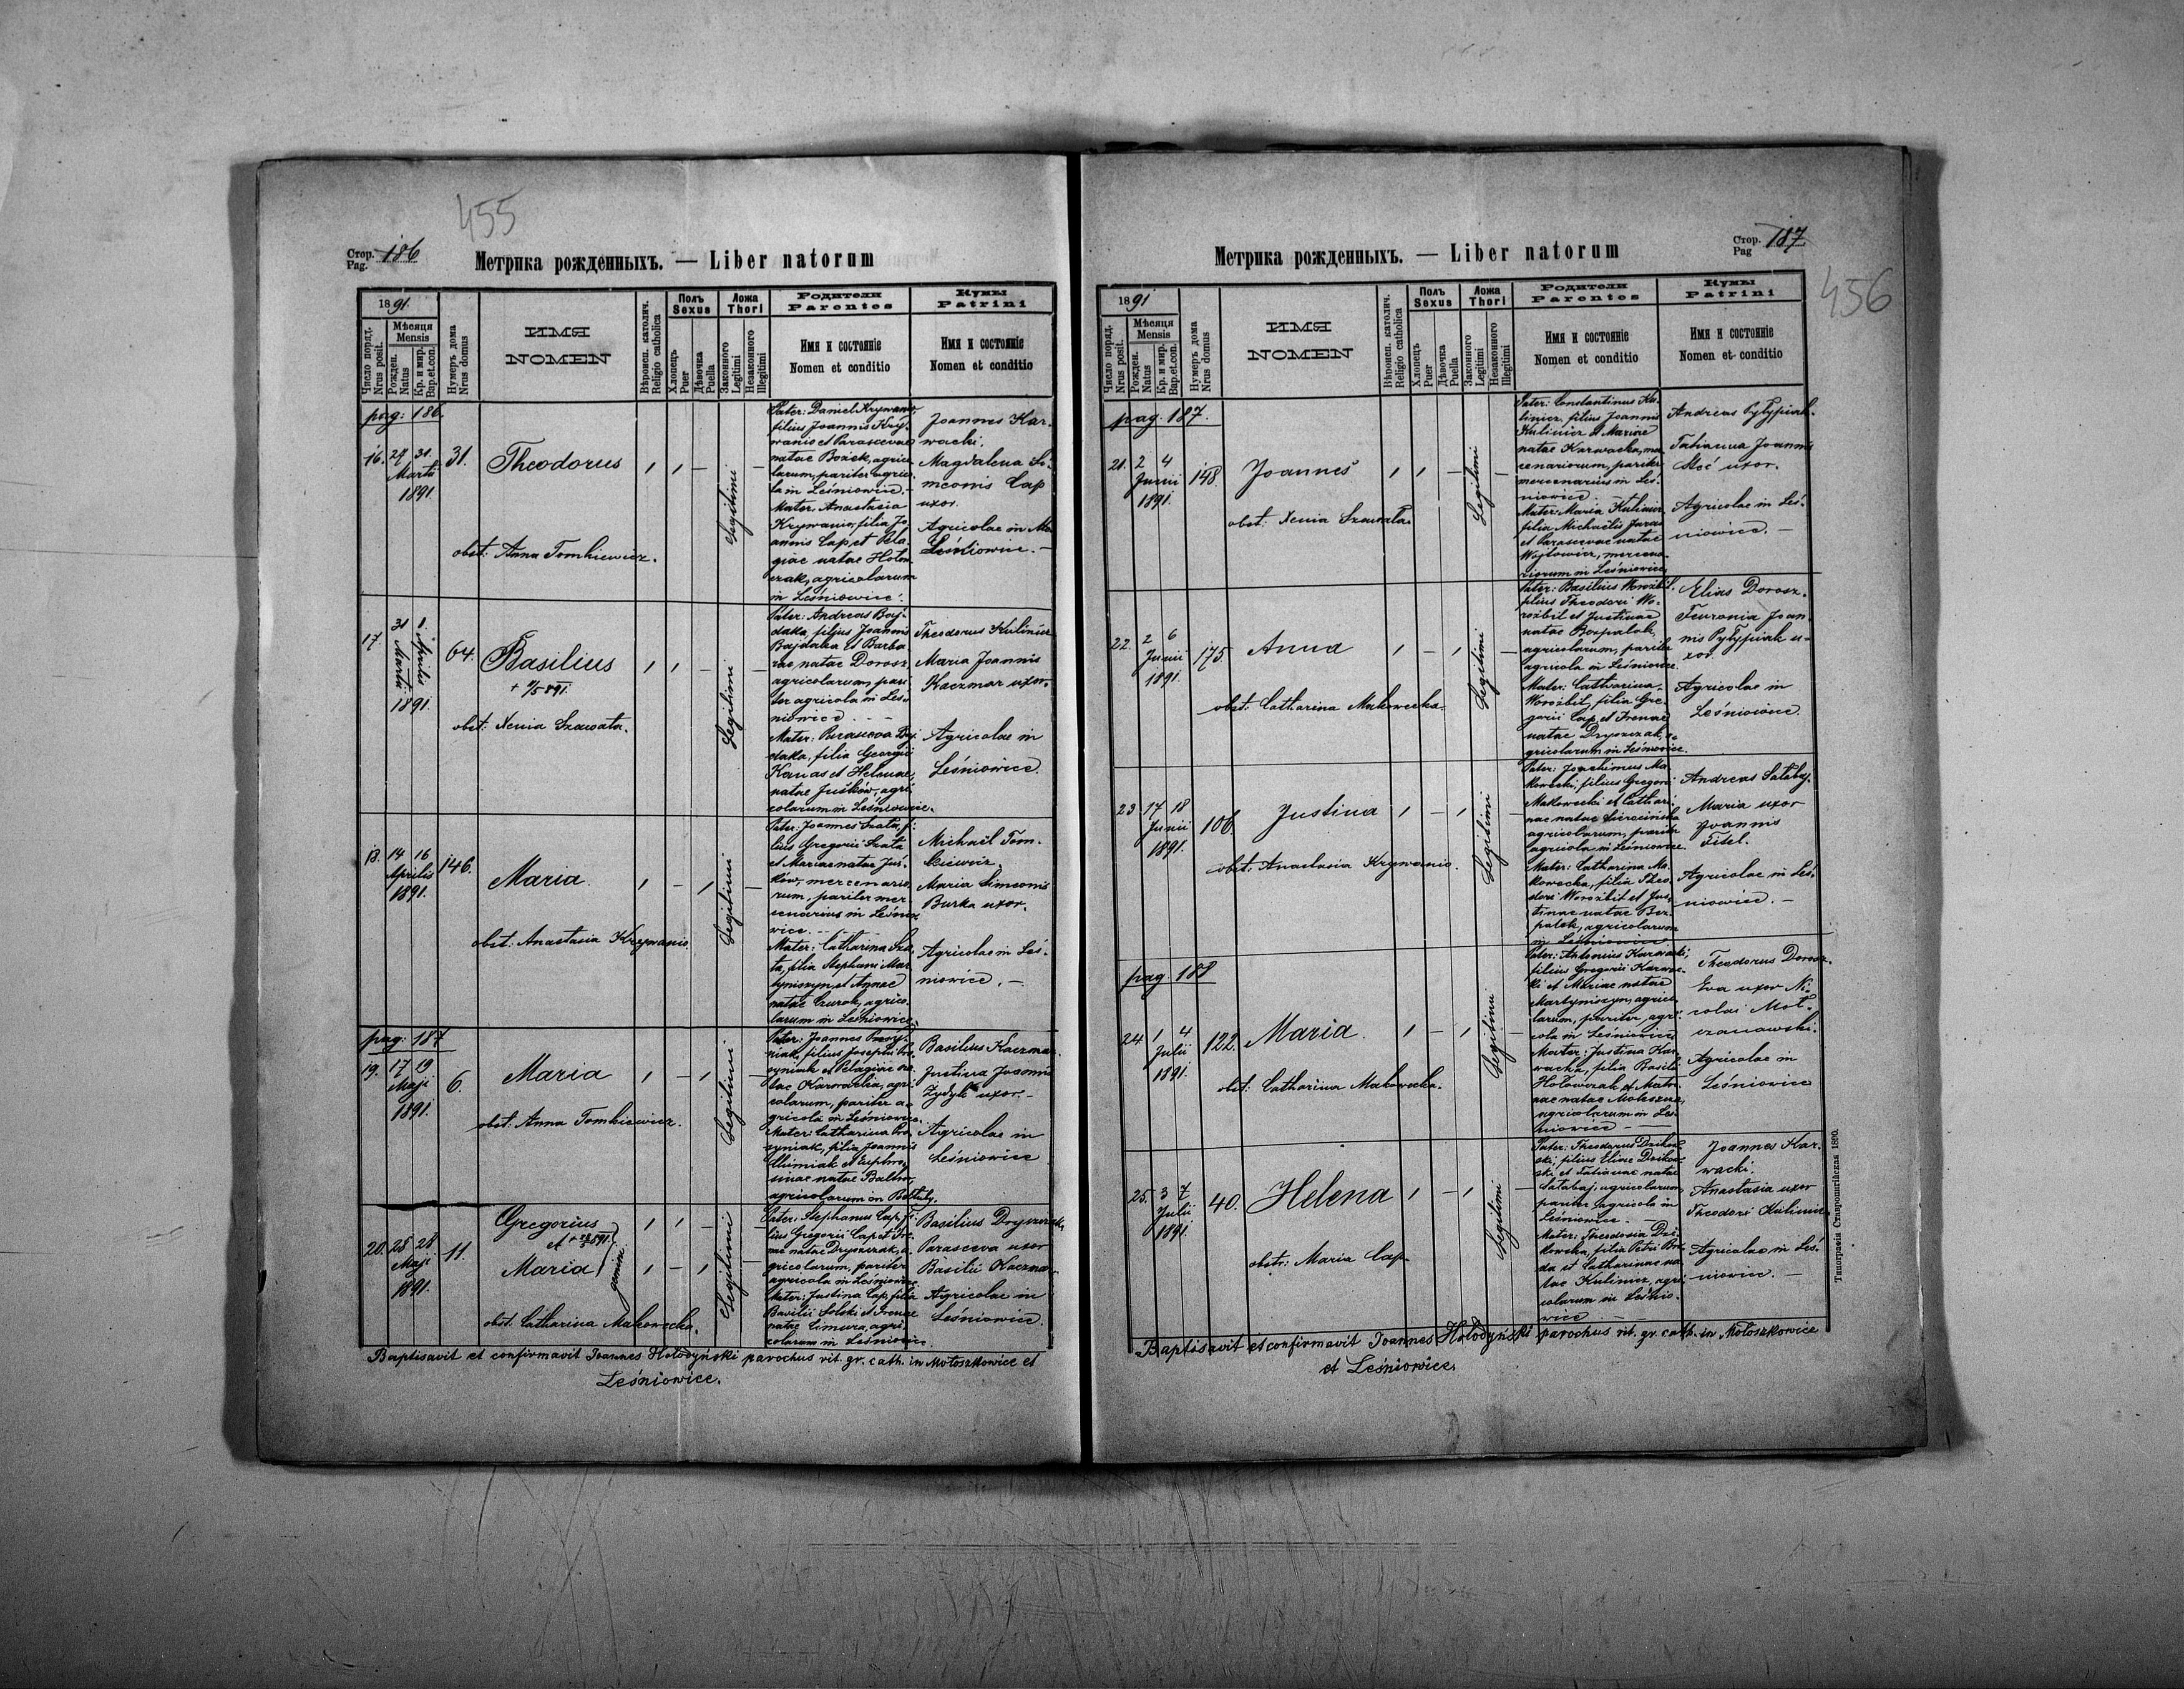 455
Стор. Pag. 186
Метрика рожденныхъ. — Liber natorum
1891.
Число поряд. Nrus posit.
Мѣсяця Mensis
Рожден. Natus
Кр. и мир. Bap. et. con.
Нумеръ дома Nrus domus
ИМЯ
NOMEN
Вѣроисп. католич. Religio catholica
Полъ Sexus
Хлопецъ Puer
Дѣвочка Puella
Ложа Thori
Законного Legitimi
Незаконного Illegitimi
Родители
Parentes
Имя и состояніе
Nomen et conditio
Кумы
Patrini
Имя и состояніе
Nomen et conditio
pag: 186.
16. 27 31. Martii 1891. 31. Theodorus
obst: Anna Tomkiewicz.
Legitimi
Pater: Daniel Krywanio,
filius Joannis Kry-
wanio et Parascevae
natae Bozek, agrico-
larum, pariter agrico-
la in Leśniowice. -
Mater: Anastasia
Krywanio, filia Jo-
annis Cap, et Pela-
giae natae Hołow-
czak, agricolarum
in Leśniowice.
Joannes Kar-
wacki.
Magdalena Si-
meonis Cap
uxor.
Agricolae in
Leśniowice. -
17. 31 Martii 1. Aprilis 1891. 64. Basilius
obst: Xenia Szawała.
Legitimi
Pater: Andreas Baj-
daka, filius Joannis
Bajdaka et Barba-
rae natae Dorosz,
agricolarum, pari-
ter agricola in Leś-
niowice. - -
Mater: Parasceva Baj-
daka, filia Georgii
Kanas et Helenae,
natae Juśków, agri-
colarum in Leśniowice.
Theodorus Kulinicz
Maria Joannis
Kaczmar uxor.
Agricolae in
Leśniowice.
18. 14 16 Aprilis 1891. 146. Maria.
obst: Anastasia Krywanio.
Legitimi
Pater: Joannes Szata, fi-
lius Gregorii Szata
et Mariae natae Jus-
ków, mercenario-
rum, pariter mer-
cenarius in Leśnio-
wice. - -
Mater: Catharina Sza-
ta, filia Stephani Mar-
tyniszyn et Annae
natae Czurok, agrico-
larum in Leśniowice.
Michaël Tom-
kiewicz.
Maria Simeonis
Burka uxor.
Agricolae in Leś-
niowice. -
pag: 187
19. 17 19 Maji 1891. 6. Maria
obst: Anna Tomkiewicz.
Legitimi
filius Josephi
et Pelagiae na-
tae agri-
colarum, pariter a-
gricola in Leśniowice.
Mater: Catharina
filia Joannis
et Euphro-
sinae natae
agricolarum in
Basilius Kaczmar.
Justina Joannis
uxor. -
Agricolae in
Leśniowice
20. 25 28 Maji 1891. 11. Gregorius
et
Maria
gemini
obst. Catharina Makowecka.
Legitimi
Pater: Stephanus Cap, fi-
lius Gregorii Cap et Ire-
nae natae Dryszczak, a-
gricolarum, pariter
agricola in Leśniowice.
Mater: Justina Cap, filia
Basilii Solski et Irenae
natae Cimura, agri-
colarum in Leśniowice.
Basilius Dryszczak,
Parasceva uxor
Basilii Kaczmar.
Agricolae in
Leśniowice.
Baptisavit et confirmavit Joannes Hołodyński parochus rit. gr. cath. in Mołoszkowice et
Leśniowice.
456
Стор. Pag 187
Метрика рожденныхъ. — Liber natorum
1891
Число поряд. Nrus posit.
Мѣсяця Mensis
Рожден. Natus
Кр. и мир. Bap. et. con.
Нумеръ дома Nrus domus
ИМЯ
NOMEN
Вѣроисп. католич. Religio catholica
Полъ Sexus
Хлопецъ Puer
Дѣвочка Puella
Ложа Thori
Законного Legitimi
Незаконного Illegitimi
Родители
Parentes
Имя и состояніе
Nomen et conditio
Кумы
Patrini
Имя и состояніе
Nomen et conditio
pag. 187.
21. 2 4 Junii 1891. 148. Joannes
obst: Xenia Szawała.
Legitimi
Pater: Constantinus Ku-
linicz, filius Joannis
Kulinicz et Mariae
natae Karwacka, mer-
cenariorum, pariter
mercenarius in Leś-
niowice. -
Mater: Maria Kulinicz
filia Michaëlis Juras
et Parascevae natae
Wojtowicz, mercena-
riorum in Leśniowice.
Andreas Pyłypiak.
Tatianna Joannis
Steć uxor.
Agricolae in Leś-
niowice. -
22. 2 6 Junii 1891. 175. Anna
obst: Catharina Makowecka.
Legitimi
Pater: Basilius Worożbit,
filius Theodori Wo-
rożbit et Justinae
natae Bezpalok,
agricolarum, pariter
agricola in Leśniowice.
Mater: Catharina
Worożbit, filia Gre-
gorii Cap et Irenae
natae Dryszczak, a-
gricolarum in Leśniowice.
Elias Dorosz.
Fewronia Joan-
nis Pyłypiak u-
xor.
Agricolae in
Leśniowice.
23 17 18 Junii 1891. 106. Justina
obst: Anastasia Krywanio.
Legitimi
Pater: Joachimus Ma-
kowecki, filius Gregorii
Makowecki et Cathari-
nae natae
agricolarum, pariter
agricola in Leśniowice.
Mater: Catharina Ma-
kowecka, filia Theo-
dori Worożbit et Jus-
tinae natae Bez-
palok, agricolarum
in Leśniowice.
Andreas Satabaj.
Maria uxor
Joannis
Titel.
Agricolae in Leś-
niowice. -
pag. 188
24 1 4 Julii 1891. 122. Maria.
obst: Catharina Makowecka.
Legitimi
Pater: Antonius Karwacki,
filius Gregorii Karwac-
ki et Mariae natae
Martyniszyn, agrico-
larum, pariter agri-
cola in Leśniowice
Mater: Justina Kar-
wacka, filia Basilii
Hołowczak et Matro-
nae natae
agricolarum in Leś-
niowice - -
Theodorus Dorosz.
Eva uxor Ni-
colai Moł-
czanowski.
Agricolae in
Leśniowice
25. 3 7 Julii 1891. 40. Helena
obstr: Maria Cap
Legitimi
Pater: Theodorus Dzikow-
ski, filius Eliae Dzikow-
ski et Tatianae natae
Satabaj, agricolarum,
pariter agricola in
Leśniowice. -
Mater: Theodosia Dzi-
kowska, filia Petri
et Catharinae na-
tae Kulinicz, agri-
colarum in Leśnio-
wice -
Joannes Kar-
wacki.
Anastasia uxor
Theodori Kulinicz
Agricolae in Leś-
niowice. -
Baptisavit et confirmavit Joannes Hołodyński parochus rit. gr. cath. in Mołoszkowice
et Leśniowice.
Типографія Ставропигійская 1890.